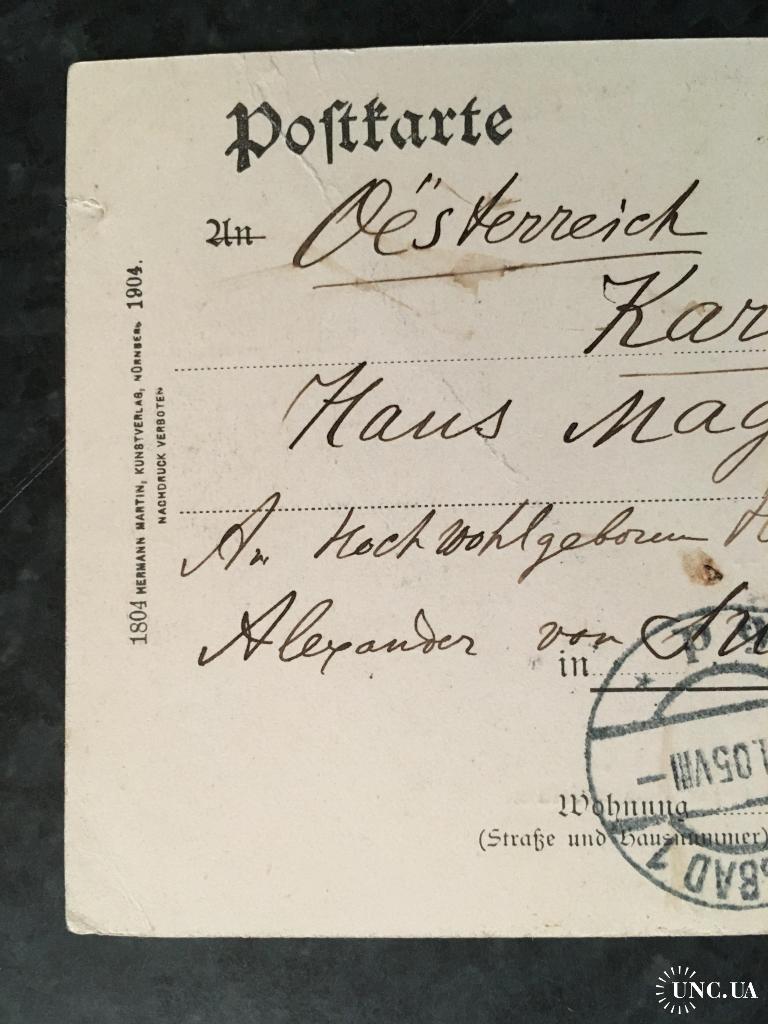 Postkarte
An Oësterreich
Kar
Haus Mag
An Hochwohlgeboren H
Alexander von Su
in
Wohnung
(Straße und Hausnummer)
1804 HERMANN MARTIN, KUNSTVERLAG, NÜRNBERG 1904.
NACHDRUCK VERBOTEN
05 VIII
SBAD 1
UNC.UA